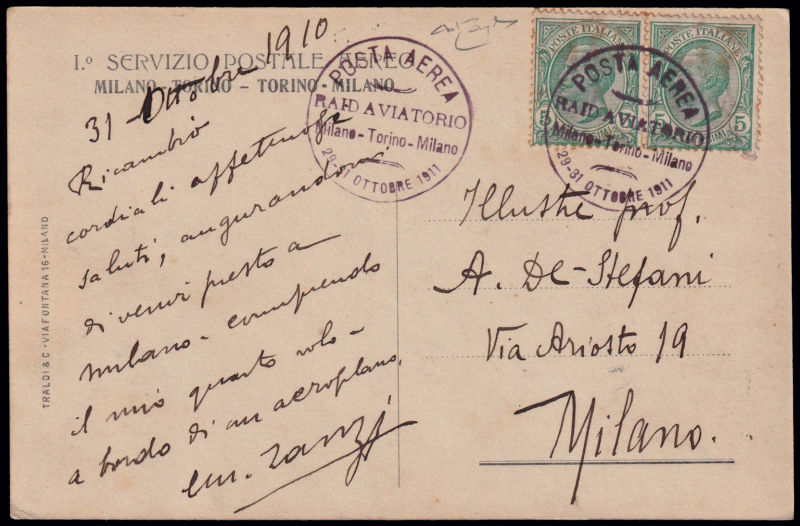 I.º SERVIZIO POSTALE AEREO
MILANO-TORINO - TORINO-MILANO
31 Ottobre 1910
Ricambio
cordiali affettuosi
saluti, augurandomi
di venir presto a
Milano - compiendo
il mio quarto volo -
a bordo di un aeroplano.
em. Tanzi
TRALDI & C - VIA FONTANA 16 - MILANO
POSTA AEREA
RAID AVIATORIO
Milano-Torino-Milano
29-31 OTTOBRE 1911
POSTE ITALIANE
5
POSTE ITALIANE
5
5
POSTA AEREA
RAID AVIATORIO
Milano-Torino-Milano
29-31 OTTOBRE 1911
Illustre prof.
A. De-Stefani
Via Ariosto 19
Milano.